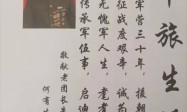 旅生
军营三十年，援朝
征战度艰辛，诚为
无愧军人生，耄耋
传承军伍事，启迪
敬献老团长
何有